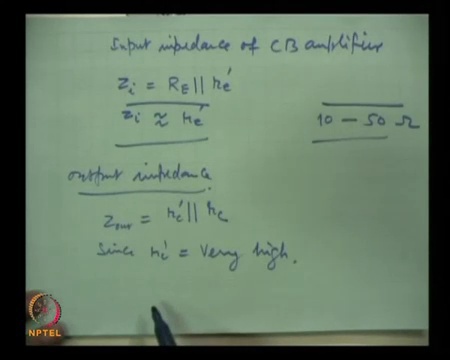 Input impedance of CB amplifier
Zi = RE || re'
Zi ≈ re'
10 – 50 Ω
output impedance
Zout = rc' || rc
Since rc' = Very high.
NPTEL